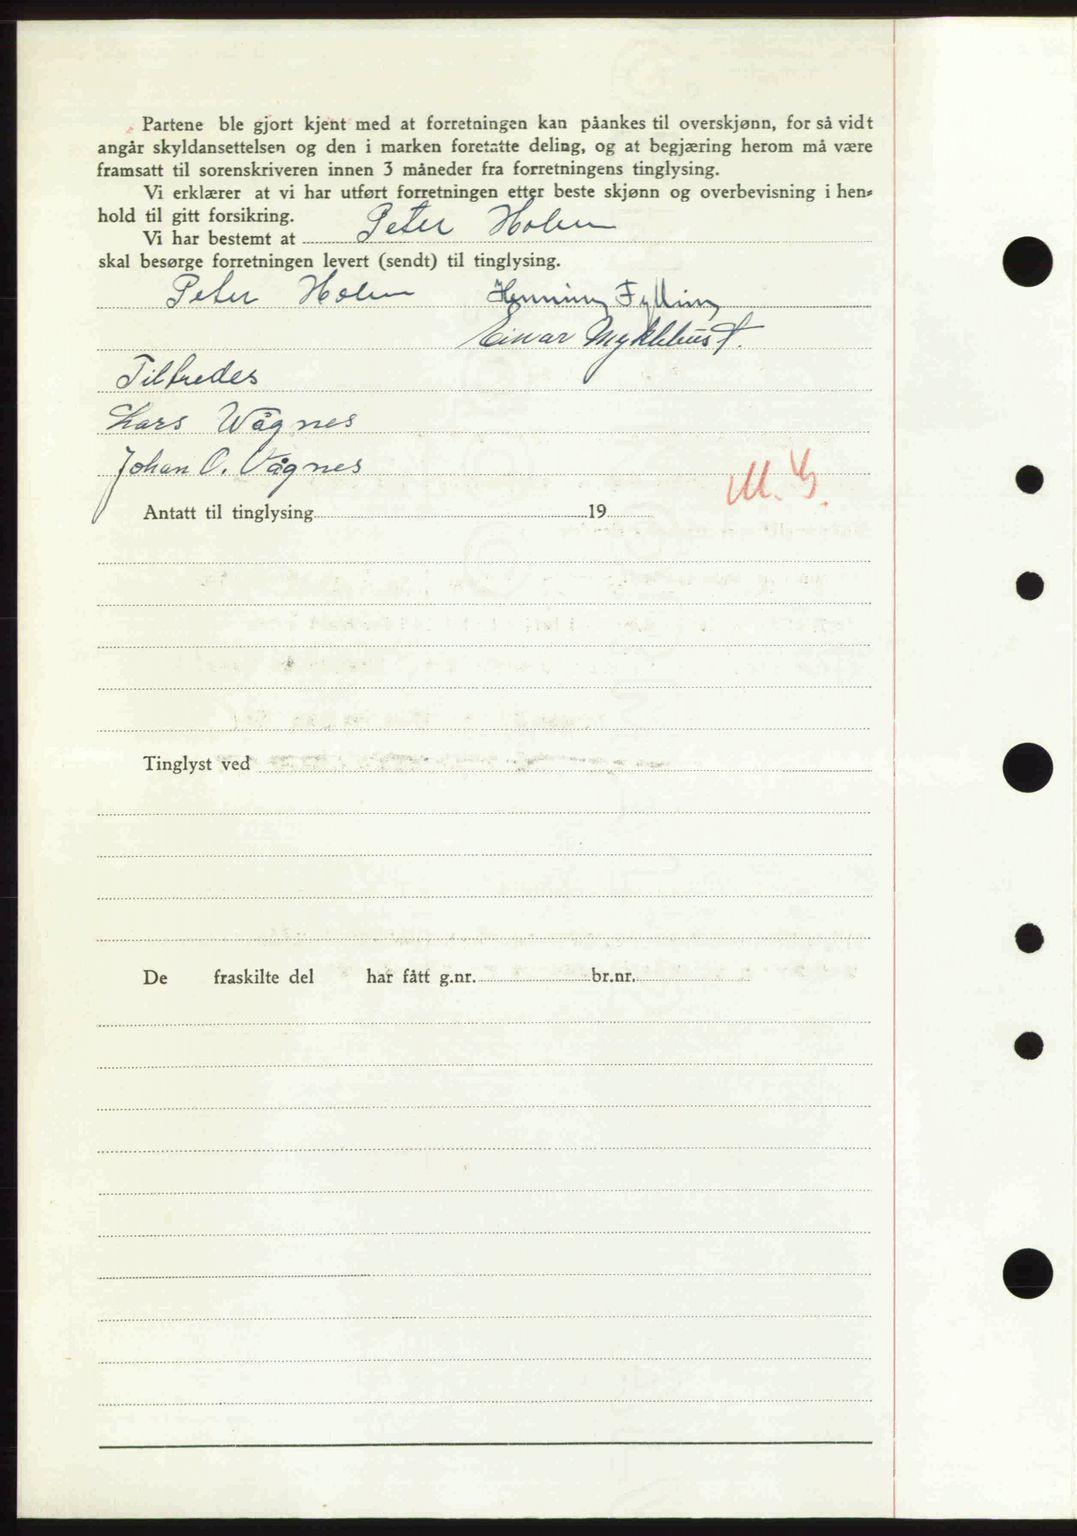 Partene ble gjort kjent med at forretningen kan påankes til overskjønn, for så vidt
angår skyldansettelsen og den i marken foretatte deling, og at begjæring herom må være
framsatt til sorenskriveren innen 3 måneder fra forretningens tinglysing.
Vi erklærer at vi har utført forretningen etter beste skjønn og overbevisning i hen-
hold til gitt forsikring.
Vi har bestemt at Peter Holen
skal besørge forretningen levert (sendt) til tinglysing.
Peter Holen Henning Fylling
Einar Myklebust.
Tiltredes
Lars Vågnes
Johan O. Vågnes
M. G.
Antatt til tinglysing 19
Tinglyst ved
De fraskilte del har fått g.nr. br.nr.